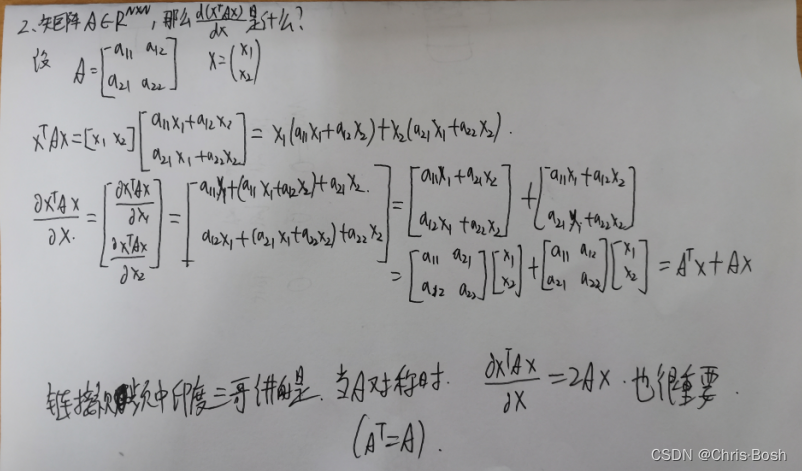 2、矩阵 A∈R^{N×N}, 那么 d(xᵀAx)/dx 是什么?
设 A=[a11 a12; a21 a22] x=(x1; x2)
xᵀAx=[x1 x2][a11x1+a12x2; a21x1+a22x2] = x1(a11x1+a12x2)+x2(a21x1+a22x2).
∂xᵀAx/∂x = [∂xᵀAx/∂x1; ∂xᵀAx/∂x2] = [a11x1+(a11x1+a12x2)+a21x2; a12x1+(a21x1+a22x2)+a22x2] = [a11x1+a21x2; a12x1+a22x2] + [a11x1+a12x2; a21x1+a22x2]
= [a11 a21; a12 a22][x1; x2]+[a11 a12; a21 a22][x1; x2] = Aᵀx+Ax
链接 频中印度三哥讲的是, 当A对称时. ∂xᵀAx/∂x = 2Ax. 也很重要.
(Aᵀ=A).
CSDN @Chris·Bosh